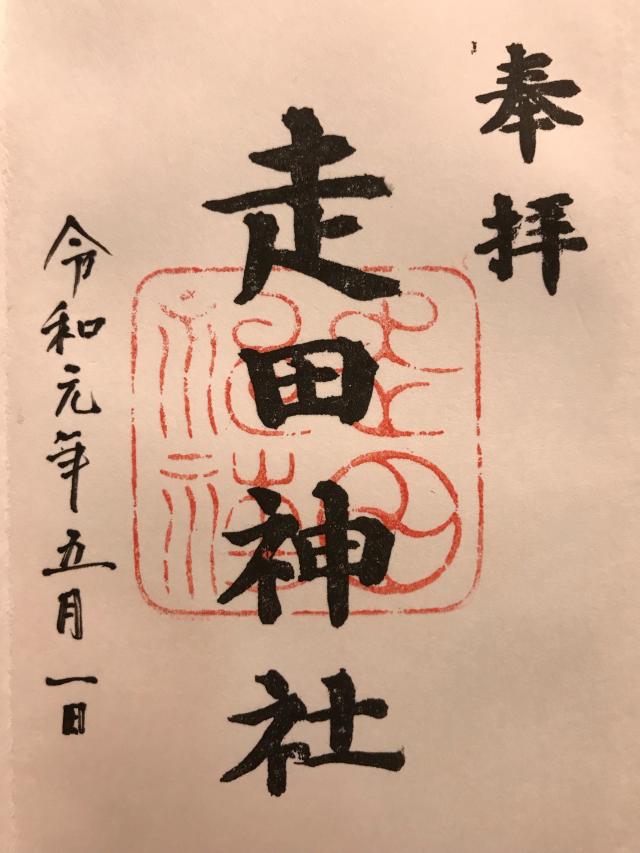 奉拝
走田神社
令和元年五月一日